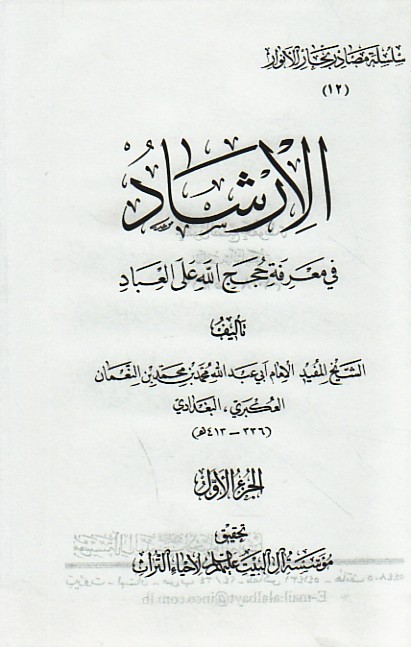 سلسلة مصادر بحار الأنوار
(١٢)
الإرشاد
في معرفة حجج الله على العباد
تأليف
الشيخ المفيد الإمام أبي عبد الله محمد بن محمد بن النعمان
العكبري، البغدادي
(٣٣٦ - ٤١٣ هـ)
الجزء الأول
تحقيق
مؤسسة آل البيت عليهم السلام لإحياء التراث
E-mail:alalbayt@inco.com.lb